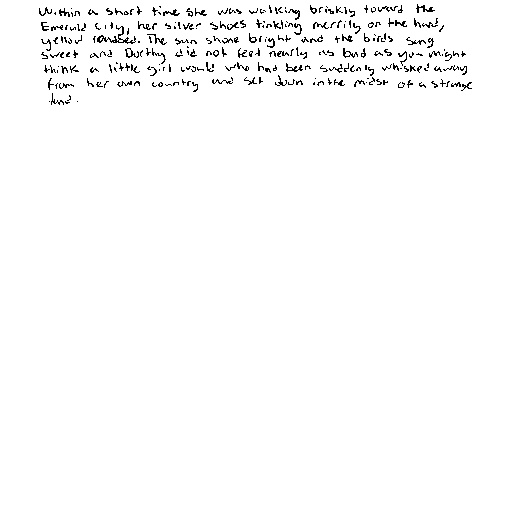 Within a short time she was walking briskly toward the
Emerald City, her silver shoes tinkling merrily on the hard,
yellow roadbed. The sun shone bright and the birds sang
sweet and Dorthy did not feel nearly as bad as you might
think a little girl would who had been suddenly whisked away
from her own country and set down in the midst of a strange
land.